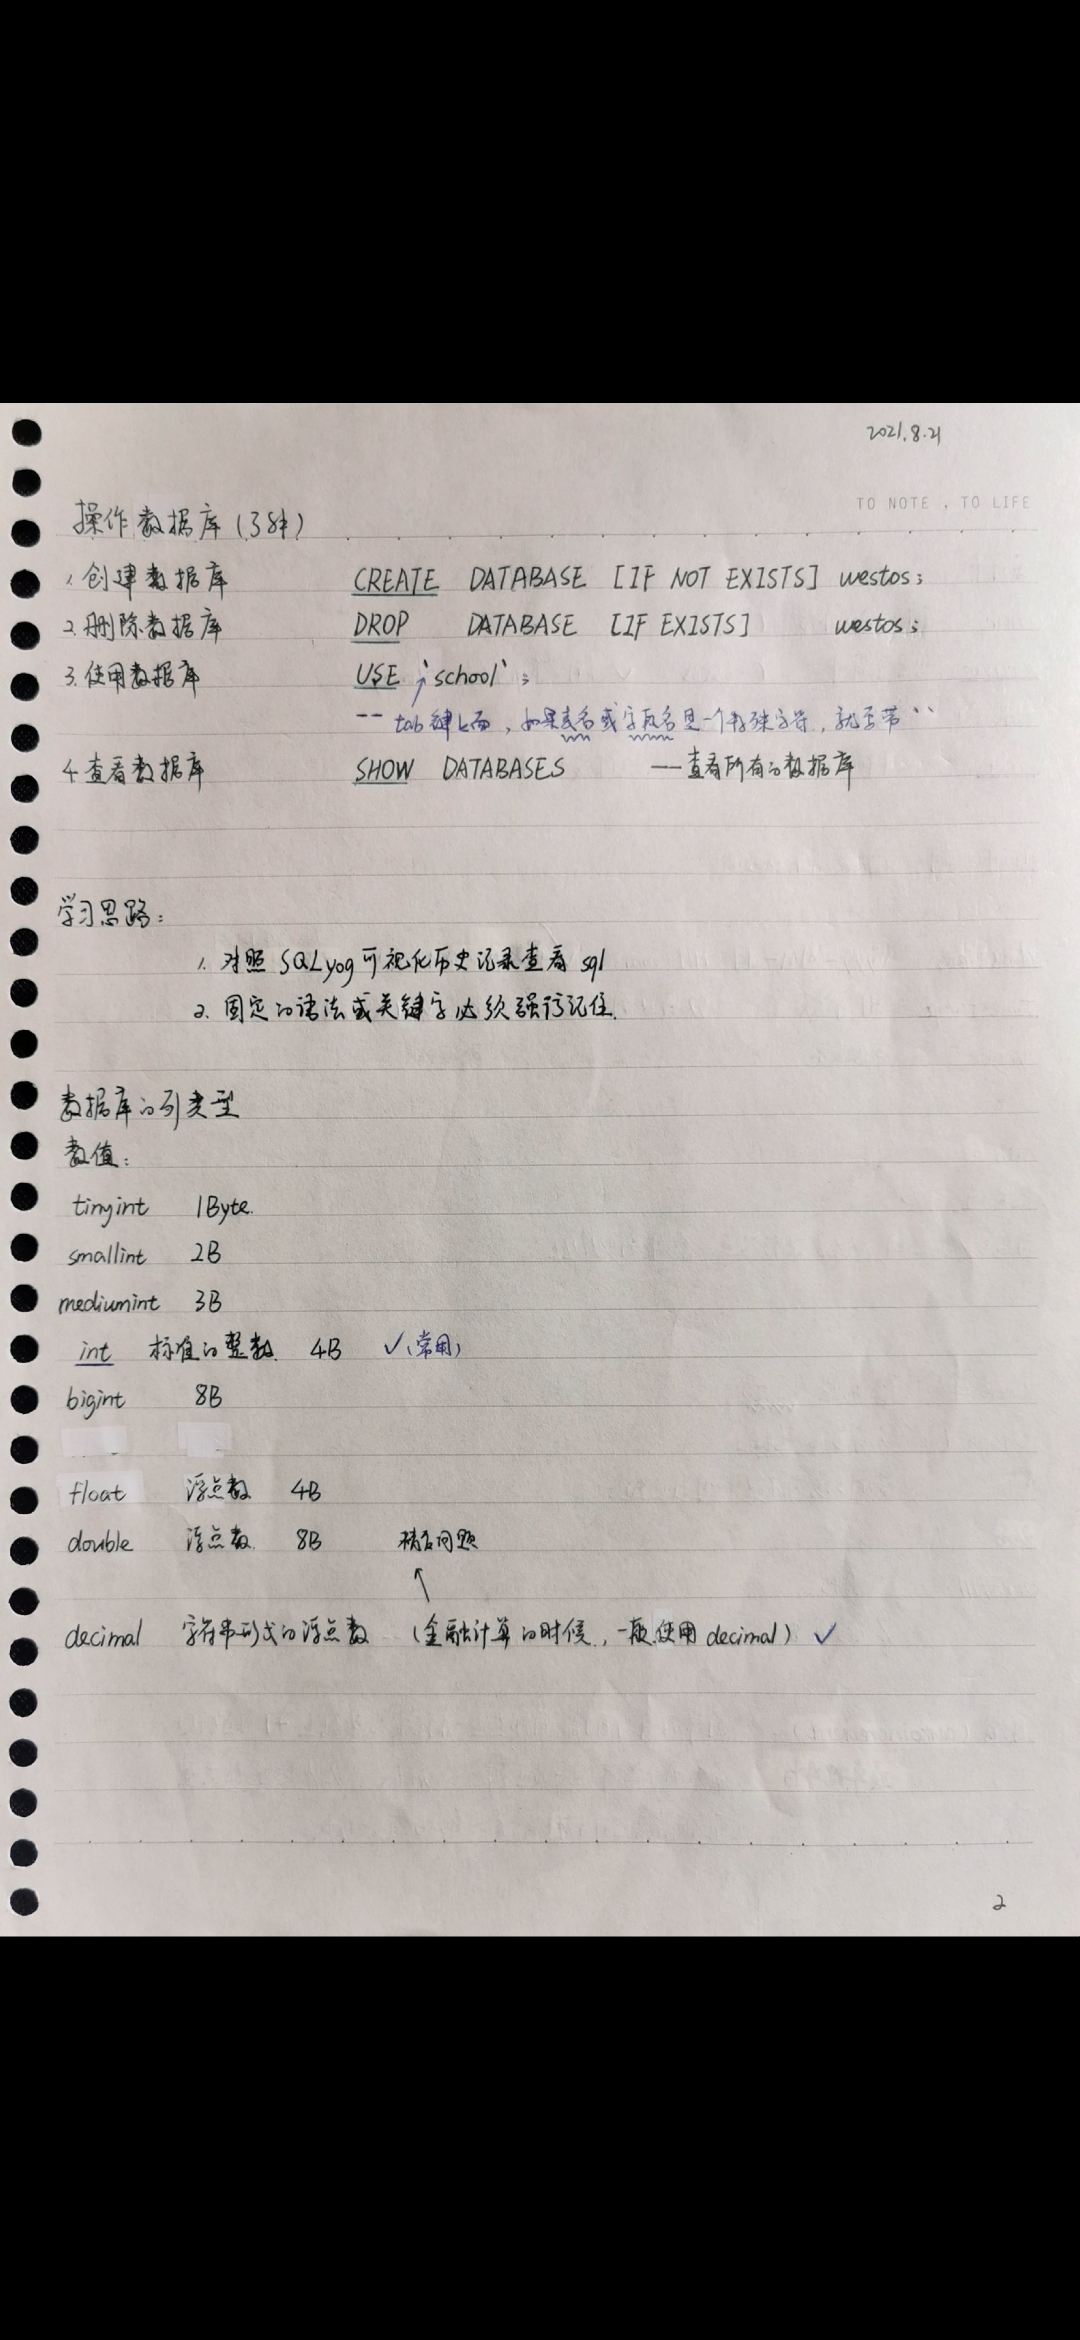 2021.8.21
TO NOTE , TO LIFE
操作数据库(了解)
1.创建数据库 CREATE DATABASE [IF NOT EXISTS] westos;
2.删除数据库 DROP DATABASE [IF EXISTS] westos;
3.使用数据库 USE `school`;
-- tab键上面,如果表名或字段名是一个特殊字符,就要带``
4.查看数据库 SHOW DATABASES —查看所有的数据库
学习思路:
1. 对照SQLyog可视化历史记录查看sql
2. 固定的语法或关键字必须强行记住.
数据库的列类型
数值:
tinyint 1Byte.
smallint 2B
mediumint 3B
int 标准的整数. 4B ✓(常用)
bigint 8B
float 浮点数 4B
double 浮点数. 8B 精度问题
↑
decimal 字符串形式的浮点数 (金融计算的时候,一般使用decimal) ✓
2